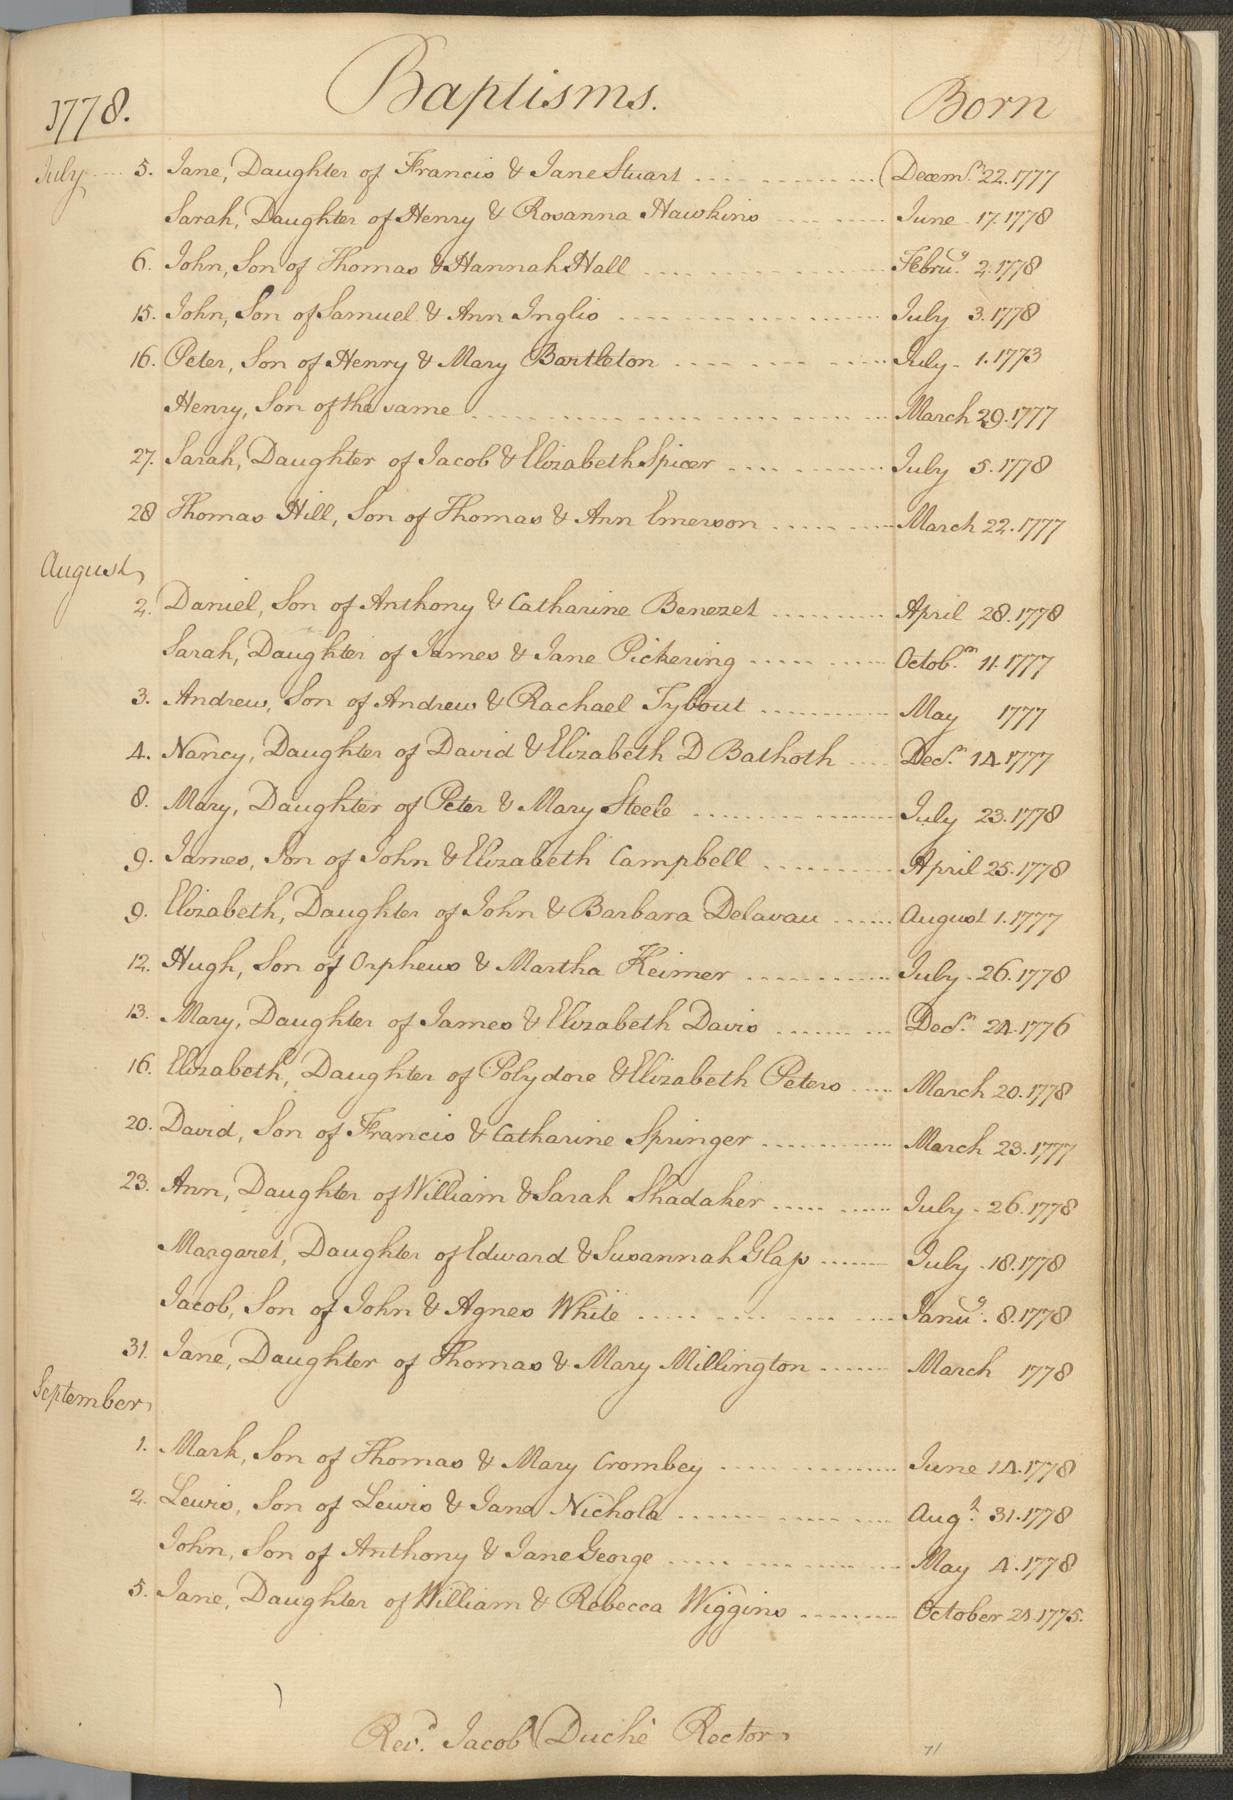 1778. Baptisms. Born
July 5. Jane, Daughter of Francis & Jane Stuart Decemr. 22. 1777
Sarah, Daughter of Henry & Rosanna Hawkins June 17. 1778
6. John, Son of Thomas & Hannah Hall Febru.y 2. 1778
15. John, Son of Samuel & Ann Inglis July 3. 1778
16. Peter, Son of Henry & Mary Bartleton July 1. 1773
Henry, Son of the same March 29. 1777
27. Sarah, Daughter of Jacob & Elizabeth Spicer July 5. 1778
28 Thomas Hill, Son of Thomas & Ann Emerson March 22. 1777
August
2. Daniel, Son of Anthony & Catharine Benezet April 28. 1778
Sarah, Daughter of James & Jane Pickering Octob.r 11. 1777
3. Andrew, Son of Andrew & Rachael Tybout May 1777
4. Nancy, Daughter of David & Elizabeth D Bathoth Decr. 14. 1777
8. Mary, Daughter of Peter & Mary Steele July 23. 1778
9. James, Son of John & Elizabeth Campbell April 25. 1778
9. Elizabeth, Daughter of John & Barbara Delavau August 1. 1777
12. Hugh, Son of Orpheus & Martha Keimer July 26. 1778
13. Mary, Daughter of James & Elizabeth Davis Decr. 24. 1776
16. Elizabeth, Daughter of Polydore & Elizabeth Peters March 20. 1778
20. David, Son of Francis & Catharine Springer March 23. 1777
23. Ann, Daughter of William & Sarah Shadaker July 26. 1778
Margaret, Daughter of Edward & Susannah Glaſs July 18. 1778
Jacob, Son of John & Agnes White Janu.y 8. 1778
31. Jane, Daughter of Thomas & Mary Millington March 1778
September
1. Mark, Son of Thomas & Mary Crombey June 14. 1778
2. Lewis, Son of Lewis & Jane Nichola Aug.t 31. 1778
John, Son of Anthony & Jane George May 4. 1778
5. Jane, Daughter of William & Rebecca Wiggins October 1775.
Rev.d Jacob Duché Rector
71